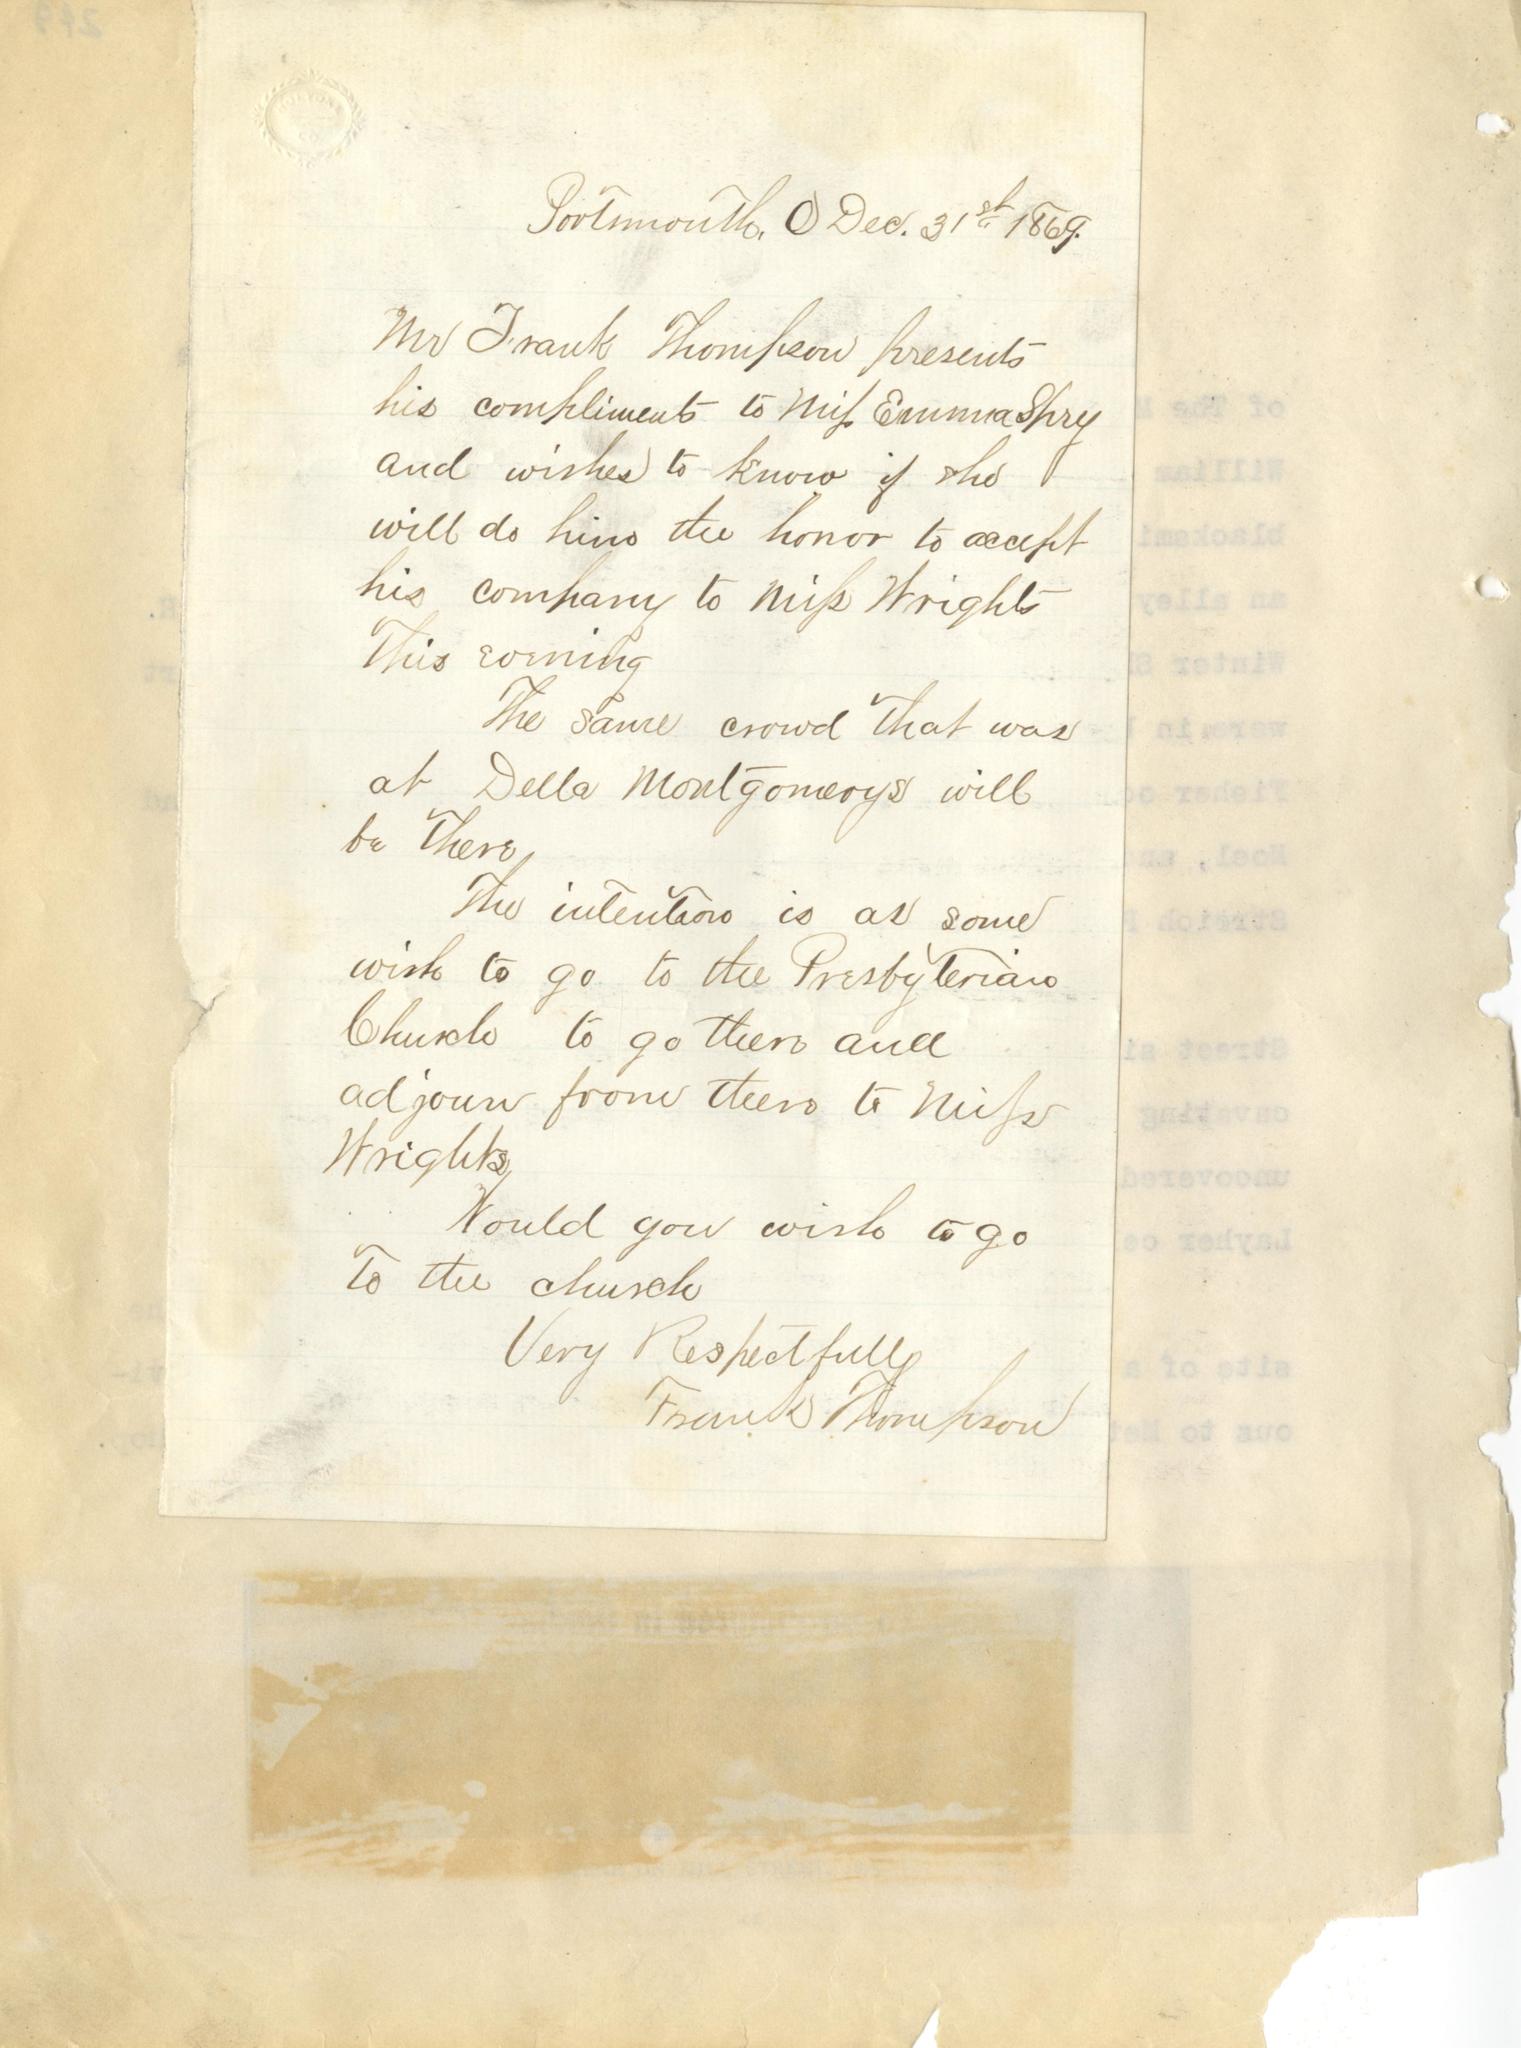 Portsmouth, O Dec. 31st 1869.
Mr Frank Thompson presents
his compliments to Miss Emma Spry
and wishes to know if she
will do him the honor to accept
his company to Miss Wrights
This evening
The same crowd that was
at Della Montgomerys will
be there,
The intention is as some
wish to go to the Presbyterian
Church to go there and
adjourn from there to Miss
Wrights,
Would you wish to go
To the church
Very Respectfully
Frank Thompson
of The
William
blacksmi
an alley
Winter S
were in
Fisher
Noel, an
Streich
Street si
cavating
uncovered
Layher
site of a
ous to